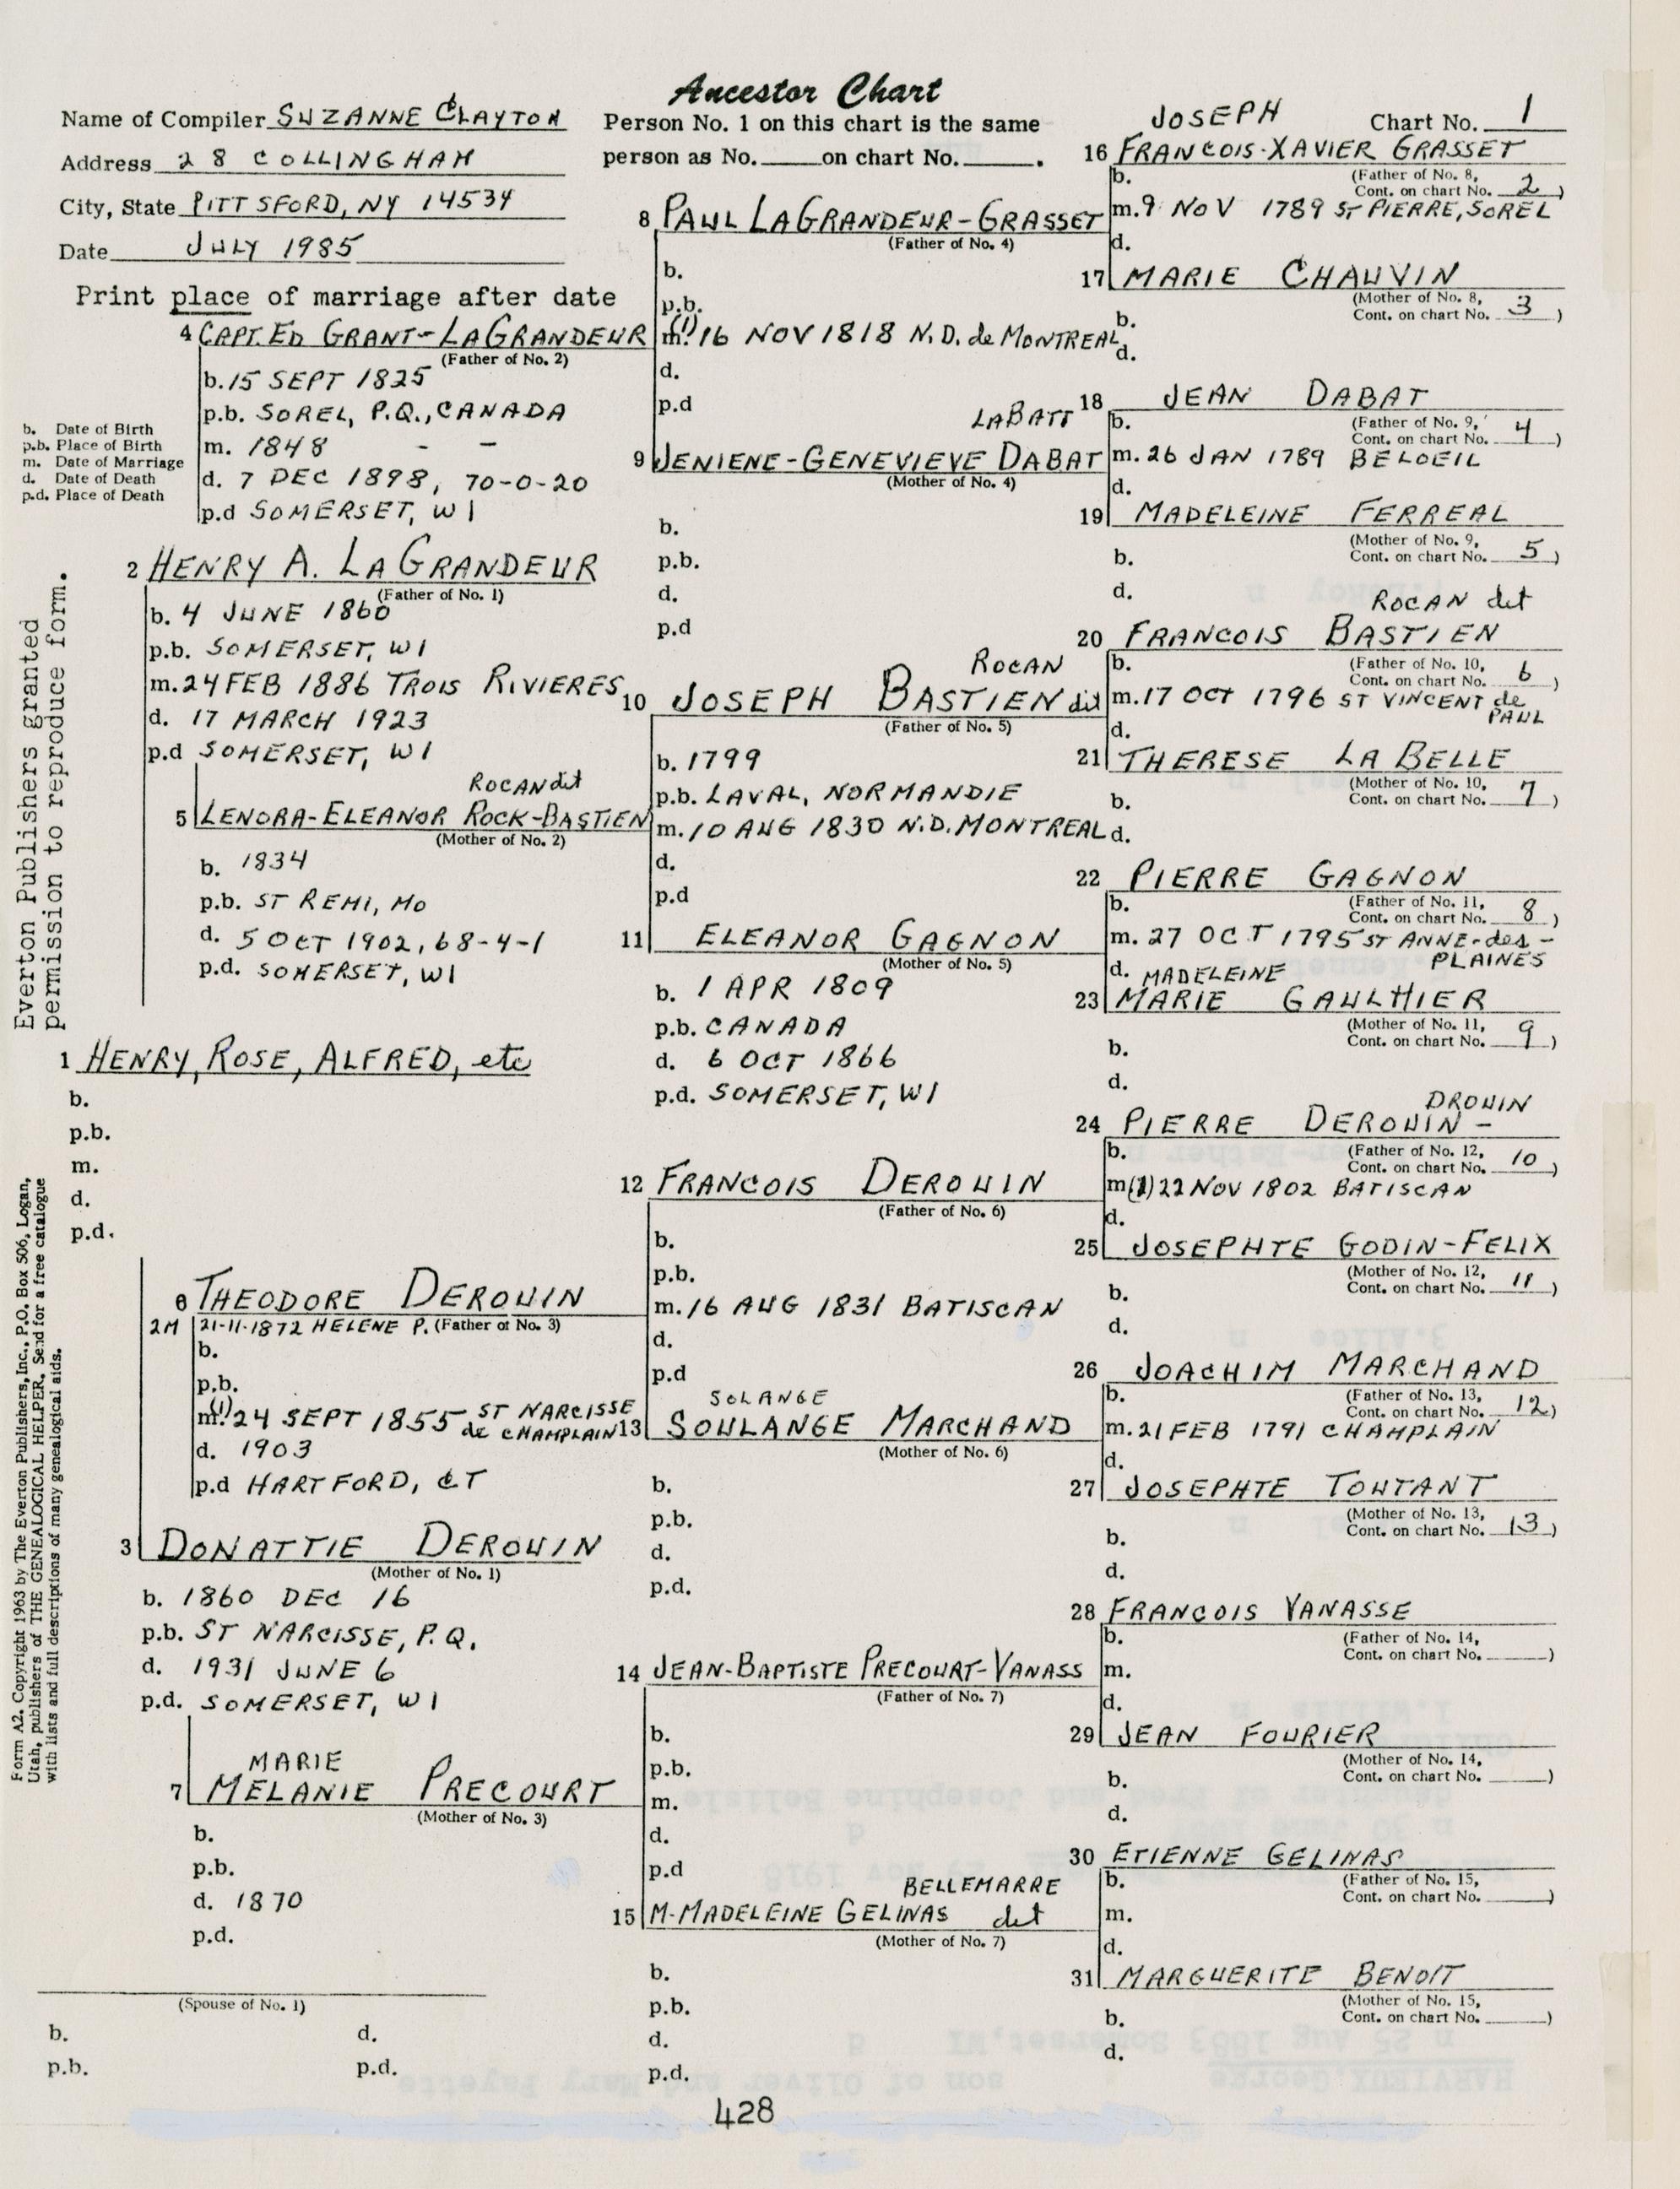 Ancestor Chart
Name of Compiler SUZANNE CLAYTON
Address 28 COLLINGHAM
City, State PITTSFORD, NY 14534
Date JULY 1985
Person No. 1 on this chart is the same
person as No. ____ on chart No. ____.
Chart No. 1
Print place of marriage after date
4 CAPT. ED GRANT-LAGRANDEUR
(Father of No. 2)
b. 15 SEPT 1825
p.b. SOREL, P.Q., CANADA
m. 1848 - -
d. 7 DEC 1898, 70-0-20
p.d SOMERSET, WI
b. Date of Birth
p.b. Place of Birth
m. Date of Marriage
d. Date of Death
p.d. Place of Death
2 HENRY A. LAGRANDEUR
(Father of No. 1)
b. 4 JUNE 1860
p.b. SOMERSET, WI
m. 24 FEB 1886 TROIS RIVIERES
d. 17 MARCH 1923
p.d SOMERSET, WI
ROCAN dit
5 LENORA-ELEANOR ROCK-BASTIEN
(Mother of No. 2)
b. 1834
p.b. ST REMI, MO
d. 5 OCT 1902, 68-4-1
p.d. SOMERSET, WI
1 HENRY, ROSE, ALFRED, etc
b.
p.b.
m.
d.
p.d.
6 THEODORE DEROUIN
2M 21-11-1872 HELENE P. (Father of No. 3)
b.
p.b.
m.(1) 24 SEPT 1855 ST NARCISSE
de CHAMPLAIN
d. 1903
p.d HARTFORD, CT
3 DONATTIE DEROUIN
(Mother of No. 1)
b. 1860 DEC 16
p.b. ST NARCISSE, P.Q.
d. 1931 JUNE 6
p.d. SOMERSET, WI
MARIE
7 MELANIE PRECOURT
(Mother of No. 3)
b.
p.b.
d. 1870
p.d.
(Spouse of No. 1)
b. d.
p.b. p.d.
8 PAUL LAGRANDEUR-GRASSET
(Father of No. 4)
b.
p.b.
m.(1) 16 NOV 1818 N.D. de MONTREAL
d.
p.d
LABATT
9 JENIENE-GENEVIEVE DABAT
(Mother of No. 4)
b.
p.b.
d.
p.d
ROCAN
10 JOSEPH BASTIEN dit
(Father of No. 5)
b. 1799
p.b. LAVAL, NORMANDIE
m. 10 AUG 1830 N.D. MONTREAL
d.
p.d
11 ELEANOR GAGNON
(Mother of No. 5)
b. 1 APR 1809
p.b. CANADA
d. 6 OCT 1866
p.d. SOMERSET, WI
12 FRANCOIS DEROUIN
(Father of No. 6)
b.
p.b.
m. 16 AUG 1831 BATISCAN
d.
p.d
SOLANGE
13 SOULANGE MARCHAND
(Mother of No. 6)
b.
p.b.
d.
p.d.
14 JEAN-BAPTISTE PRECOURT-VANASS
(Father of No. 7)
b.
p.b.
m.
d.
p.d
BELLEMARRE
15 M-MADELEINE GELINAS dit
(Mother of No. 7)
b.
p.b.
d.
p.d.
JOSEPH
16 FRANCOIS-XAVIER GRASSET
b. (Father of No. 8,
Cont. on chart No. 2)
m. 9 NOV 1789 ST PIERRE, SOREL
d.
17 MARIE CHAUVIN
(Mother of No. 8,
b. Cont. on chart No. 3)
d.
18 JEAN DABAT
b. (Father of No. 9,
Cont. on chart No. 4)
m. 26 JAN 1789 BELOEIL
d.
19 MADELEINE FERREAL
(Mother of No. 9,
b. Cont. on chart No. 5)
d.
ROCAN dit
20 FRANCOIS BASTIEN
b. (Father of No. 10,
Cont. on chart No. 6)
m. 17 OCT 1796 ST VINCENT de
PAUL
d.
21 THERESE LA BELLE
(Mother of No. 10,
b. Cont. on chart No. 7)
d.
22 PIERRE GAGNON
b. (Father of No. 11,
Cont. on chart No. 8)
m. 27 OCT 1795 ST ANNE-des-
PLAINES
d.
MADELEINE
23 MARIE GAULHIER
(Mother of No. 11,
b. Cont. on chart No. 9)
d.
DROUIN
24 PIERRE DEROUIN -
b. (Father of No. 12,
Cont. on chart No. 10)
m(1) 22 NOV 1802 BATISCAN
d.
25 JOSEPHTE GODIN-FELIX
(Mother of No. 12,
b. Cont. on chart No. 11)
d.
26 JOACHIM MARCHAND
b. (Father of No. 13,
Cont. on chart No. 12)
m. 21 FEB 1791 CHAMPLAIN
d.
27 JOSEPHTE TOUTANT
(Mother of No. 13,
b. Cont. on chart No. 13)
d.
28 FRANCOIS VANASSE
b. (Father of No. 14,
Cont. on chart No. ____)
m.
d.
29 JEAN FOURIER
(Mother of No. 14,
b. Cont. on chart No. ____)
d.
30 ETIENNE GELINAS
b. (Father of No. 15,
Cont. on chart No. ____)
m.
d.
31 MARGUERITE BENOIT
(Mother of No. 15,
b. Cont. on chart No. ____)
d.
Everton Publishers granted
permission to reproduce form.
Form A2. Copyright 1963 by The Everton Publishers, Inc., P.O. Box 506, Logan,
Utah, publishers of THE GENEALOGICAL HELPER. Send for a free catalogue
with lists and full descriptions of many genealogical aids.
428